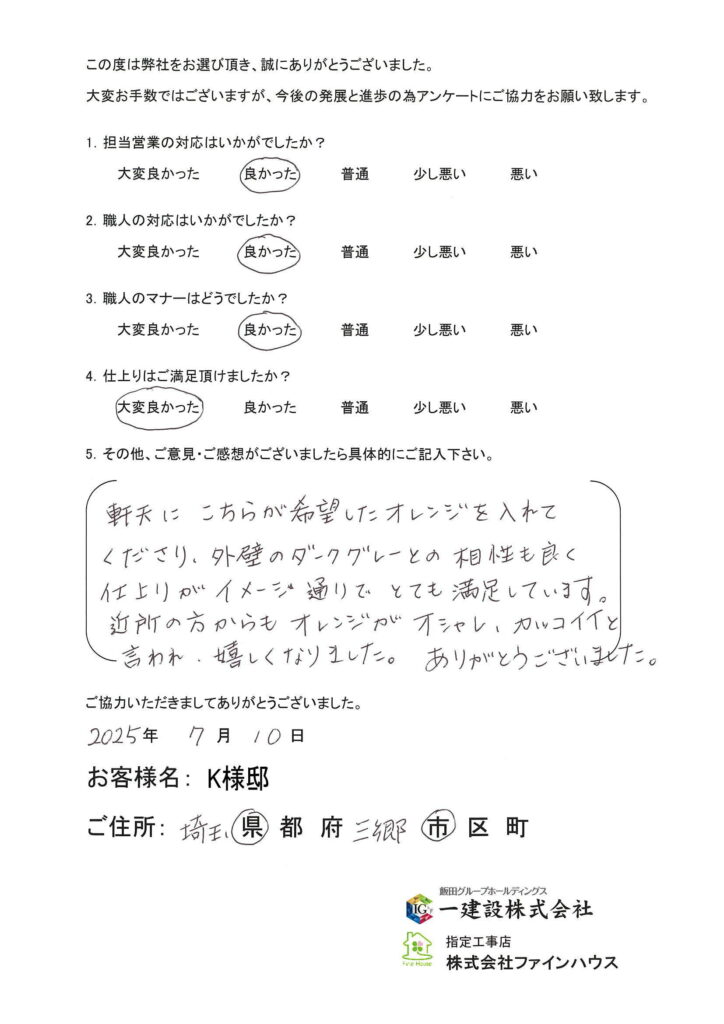 この度は弊社をお選び頂き、誠にありがとうございました。
大変お手数ではございますが、今後の発展と進歩の為アンケートにご協力をお願い致します。
1. 担当営業の対応はいかがでしたか？
大変良かった 良かった 普通 少し悪い 悪い
2. 職人の対応はいかがでしたか？
大変良かった 良かった 普通 少し悪い 悪い
3. 職人のマナーはどうでしたか？
大変良かった 良かった 普通 少し悪い 悪い
4. 仕上りはご満足頂けましたか？
大変良かった 良かった 普通 少し悪い 悪い
5. その他、ご意見・ご感想がございましたら具体的にご記入下さい。
軒天に こちらが希望したオレンジを入れて
くださり、外壁のダークグレーとの相性も良く
仕上りがイメージ通りで とても満足しています。
近所の方からも オレンジが オシャレ、カッコイイと
言われ、嬉しくなりました。 ありがとうございました。
ご協力いただきましてありがとうございました。
2025年 7月 10日
お客様名： K様邸
ご住所： 埼玉 県 都 府 三郷 市 区 町
飯田グループホールディングス
IG 一建設株式会社
指定工事店
Fine House 株式会社ファインハウス